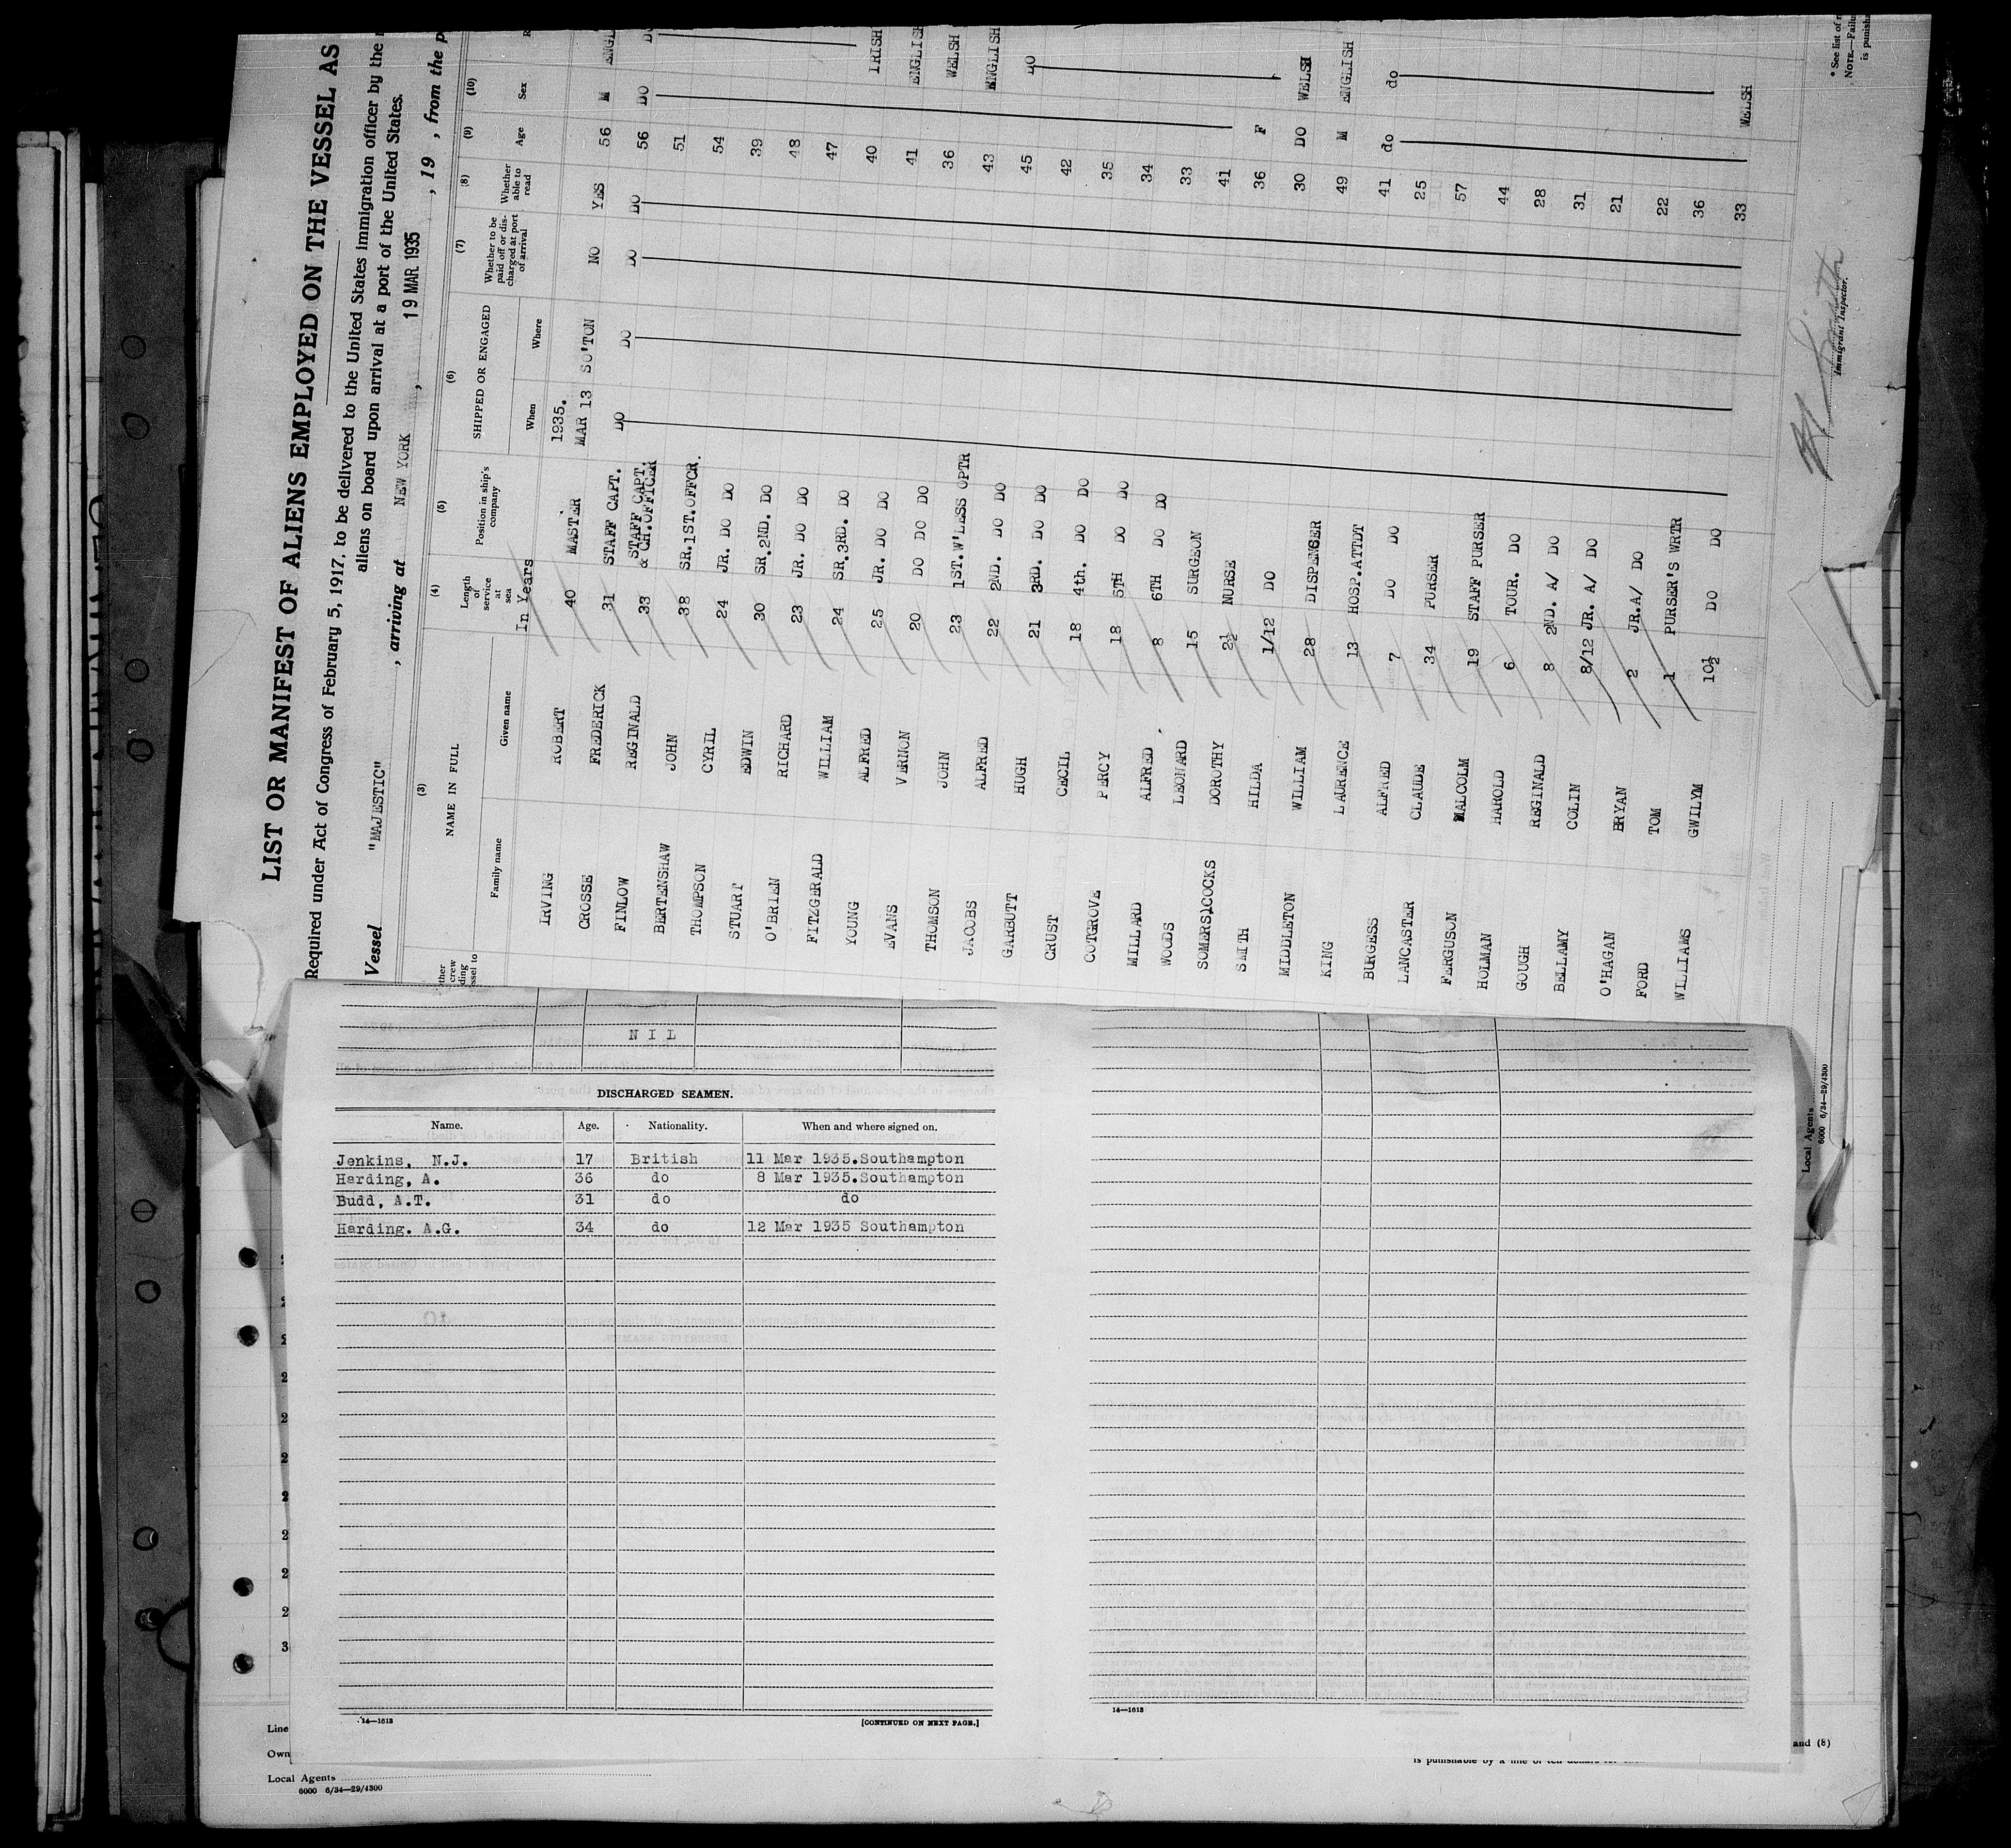 LIST OR MANIFEST OF ALIENS EMPLOYED ON THE VESSEL AS
Required under Act of Congress of February 5, 1917, to be delivered to the United States immigration officer by the
aliens on board upon arrival at a port of the United States.
Vessel "MAJESTIC" , arriving at NEW YORK , 19 MAR. 1935 , 19 , from the
(3) (4) (5) (6) (7) (8) (9) (10)
NAME IN FULL Length of service at sea Position in ship's company SHIPPED OR ENGAGED Whether to be paid off or discharged at port of arrival Whether able to read Age Sex
Family name Given name In Years When Where
1935.
IRVING ROBERT 40 MASTER MAR 13 SO'TON NO YES 56 M ENGL
CROSSE FREDERICK 31 STAFF CAPT. DO DO DO DO 56 DO DO
FINLOW REGINALD 33 STAFF CAPT. & CH.OFFICER 51
BERTENSHAW JOHN 38 SR.1ST.OFFCR. 54
THOMPSON CYRIL 24 JR. DO DO 39
STUART EDWIN 30 SR.2ND. DO 48
O'BRIEN RICHARD 23 JR. DO DO 47
FITZGERALD WILLIAM 24 SR.3RD. DO 40 IRISH
YOUNG ALFRED 25 JR. DO DO 41 ENGLISH
EVANS VERNON 20 DO DO DO 36 WELSH
THOMSON JOHN 23 1ST.W'LESS OPTR 43 ENGLISH
JACOBS ALFRED 22 2ND. DO DO 45 DO
GARBUTT HUGH 21 3RD. DO DO 42
CRUST CECIL 18 4th. DO DO 35
COTGROVE PERCY 18 5TH DO DO 34
MILLARD ALFRED 8 6TH DO DO 33
WOODS LEONARD 15 SURGEON 41
SOMERS)COCKS DOROTHY 2½ NURSE 36 F
SMITH HILDA 1/12 DO 30 DO WELSH
MIDDLETON WILLIAM 28 DISPENSER 49 M ENGLISH
KING LAURENCE 13 HOSP.ATTDT 41 do do
BURGESS ALFRED 7 DO DO 25
LANCASTER CLAUDE 34 PURSER 57
FERGUSON MALCOLM 19 STAFF PURSER 44
HOLMAN HAROLD 6 TOUR. DO 28
GOUGH REGINALD 8 2ND. A/ DO 31
BELLAMY COLIN 8/12 JR. A/ DO 21
O'HAGAN BRYAN 2 JR.A/ DO 22
FORD TOM 1 PURSER'S WRTR 36
WILLIAMS GWILYM 10½ DO DO 33 WELSH
Immigrant Inspector.
* See list of
NOTE.—Failu
is punisha
Local Agents
6000 6/34—29/4300
NIL
DISCHARGED SEAMEN.
Name. Age. Nationality. When and where signed on.
Jenkins, N.J. 17 British 11 Mar 1935.Southampton
Harding, A. 36 do 8 Mar 1935.Southampton
Budd, A.T. 31 do do
Harding. A.G. 34 do 12 Mar 1935 Southampton
14—1613 [CONTINUED ON NEXT PAGE.] 14—1613
Line
Own
and (8)
Local Agents
6000 6/34—29/4300